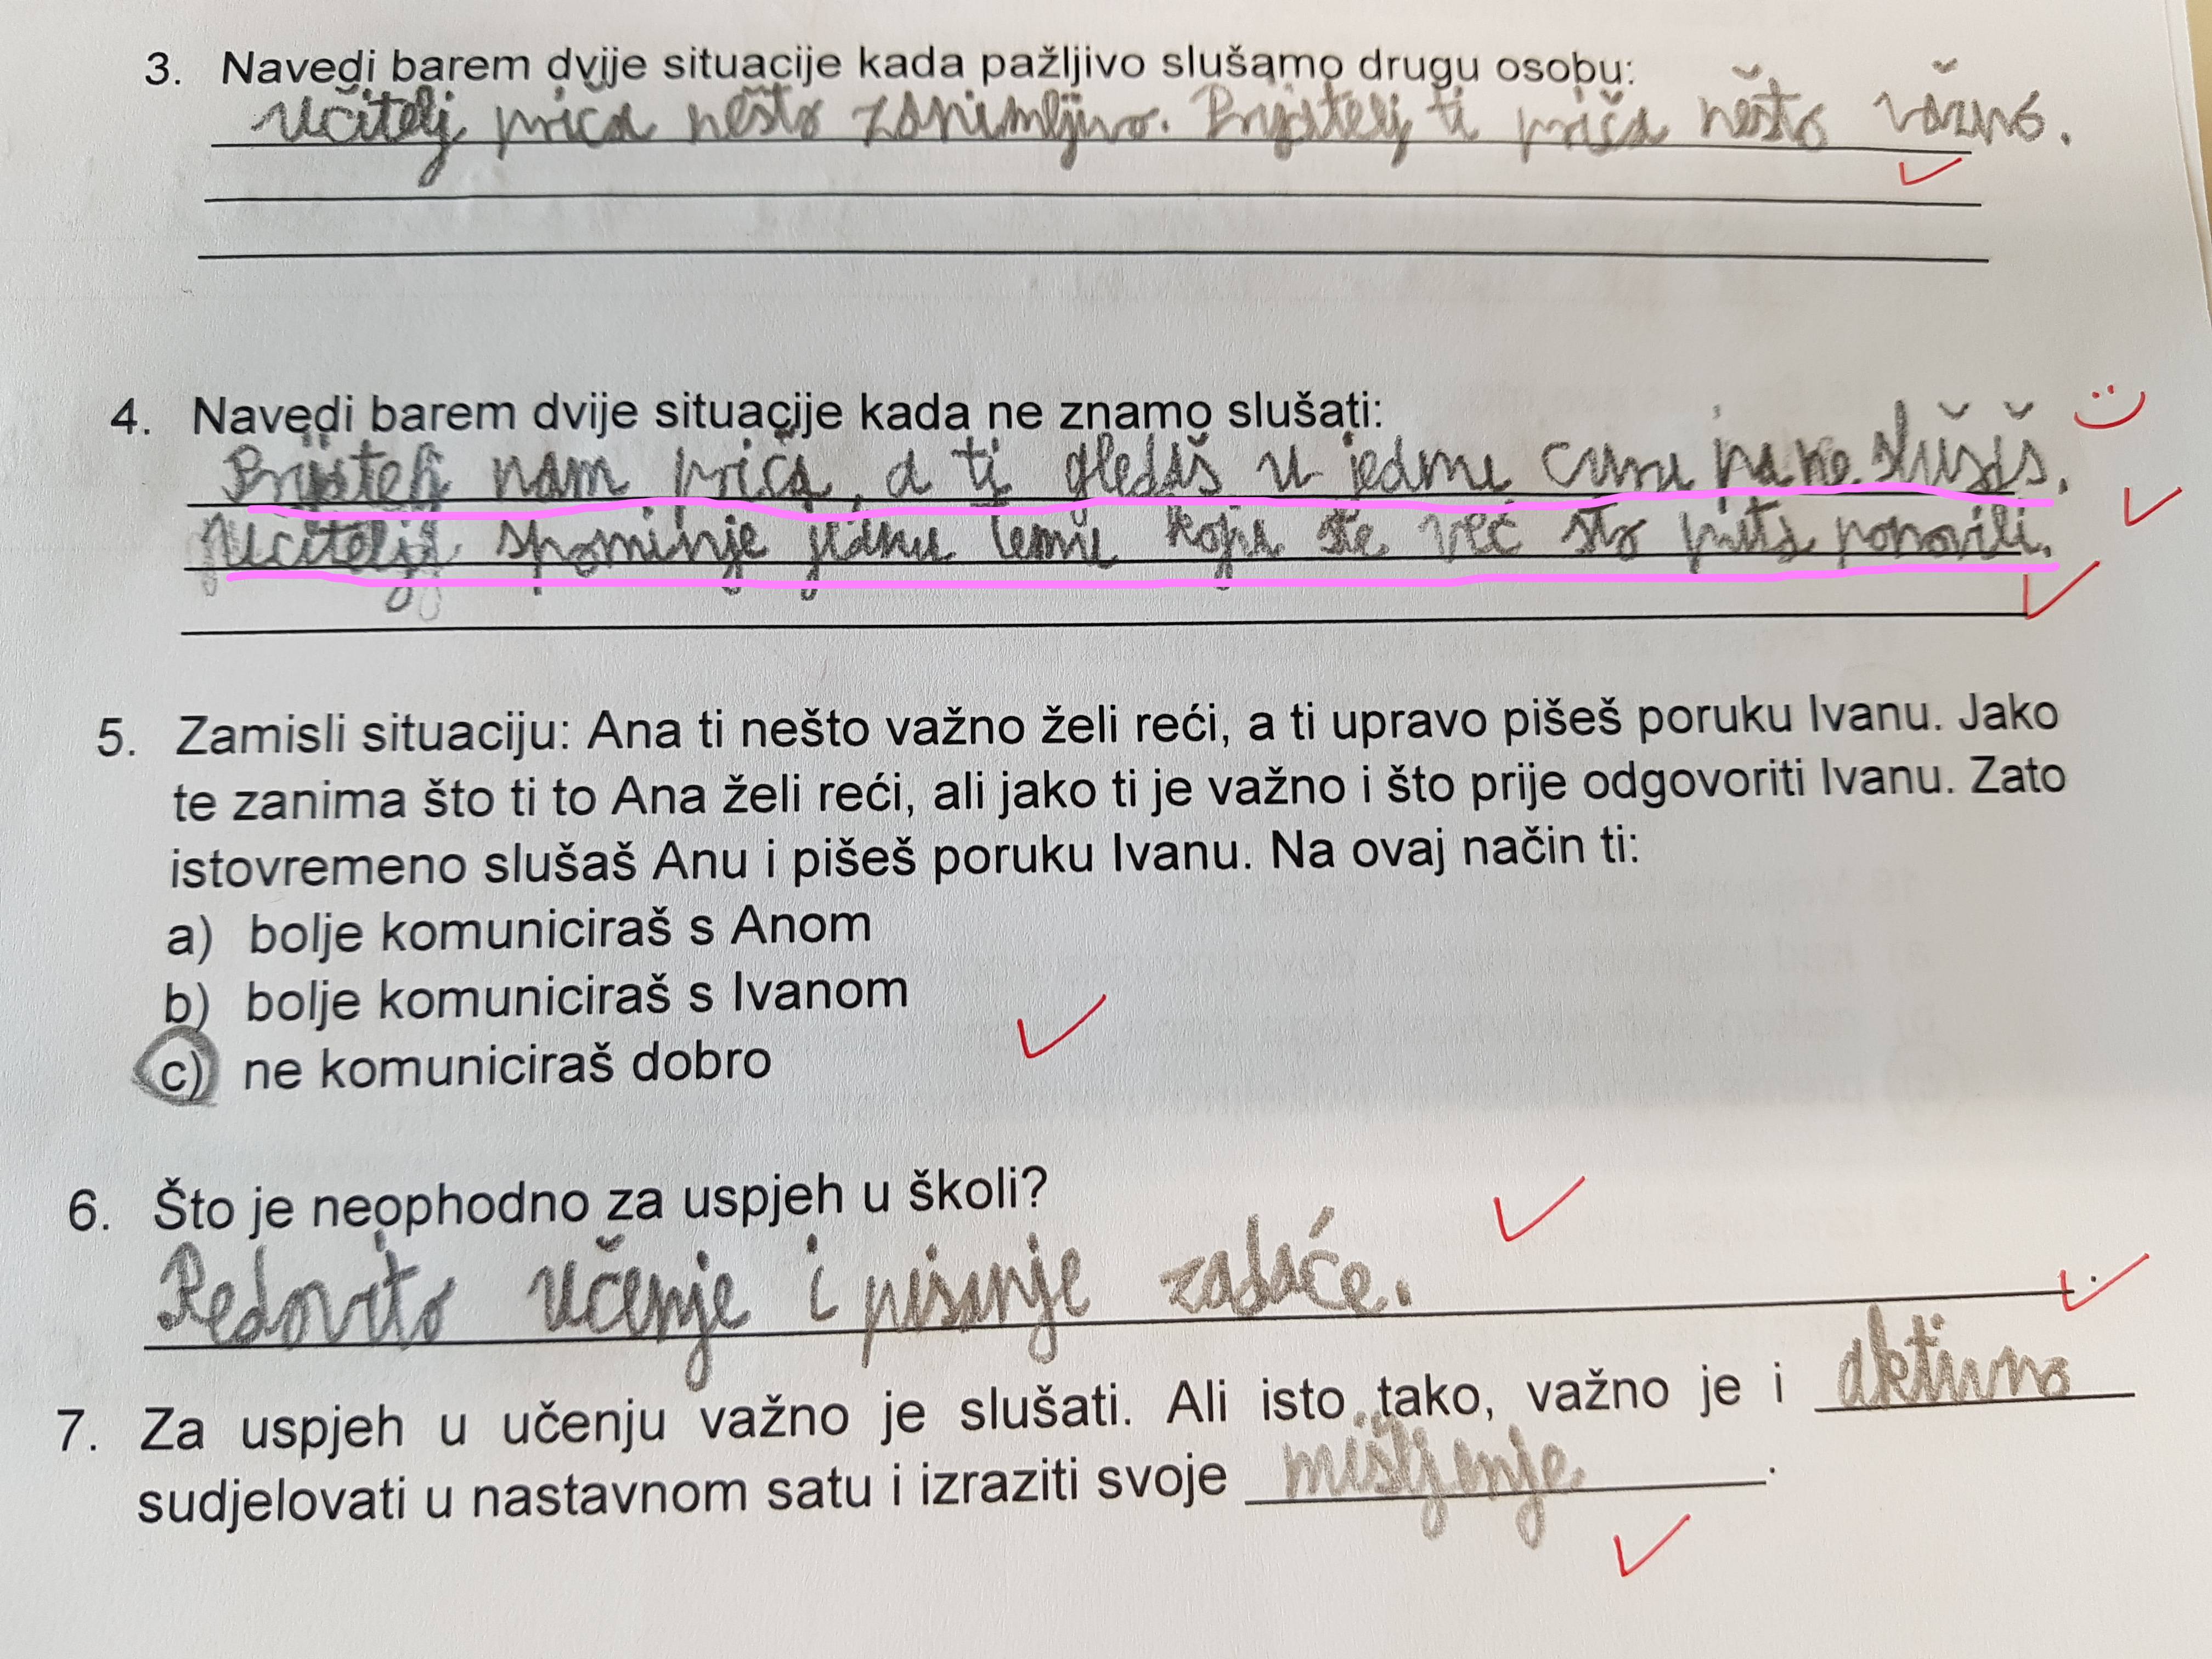 3. Navedi barem dvije situacije kada pažljivo slušamo drugu osobu:
Učitelj priča nešto zanimljivo. Prijatelj ti priča nešto važno.
4. Navedi barem dvije situacije kada ne znamo slušati:
Prijatelj nam priča, a ti gledaš u jednu curu pa ne slušaš.
Učitelj spominje jednu temu koju ste već sto puta ponovili.
5. Zamisli situaciju: Ana ti nešto važno želi reći, a ti upravo pišeš poruku Ivanu. Jako
te zanima što ti to Ana želi reći, ali jako ti je važno i što prije odgovoriti Ivanu. Zato
istovremeno slušaš Anu i pišeš poruku Ivanu. Na ovaj način ti:
a) bolje komuniciraš s Anom
b) bolje komuniciraš s Ivanom
c) ne komuniciraš dobro
6. Što je neophodno za uspjeh u školi?
Redovito učenje i pisanje zadaće.
7. Za uspjeh u učenju važno je slušati. Ali isto tako, važno je i aktivno
sudjelovati u nastavnom satu i izraziti svoje mišljenje.